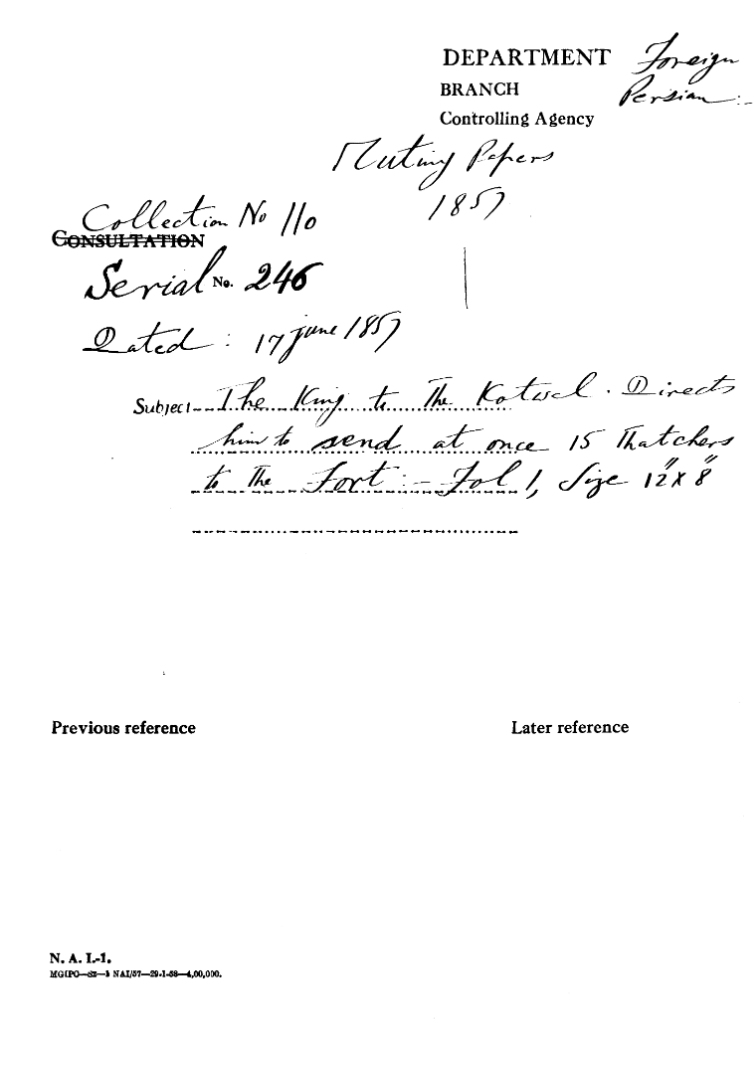 DEPARTMENT Foreign
BRANCH Persian :-
Controlling Agency
Mutiny Papers
1857
Collection No 110
CONSULTATION
Serial No. 246
Dated : 17 june 1857
Subject The King to The Kotwal. Directs
him to send at once 15 Thatchers
to The Fort :- Fol 1, Size 12" x 8"
Previous reference
Later reference
N. A. I.-1.
NAI/57—29-1-58—4,00,000.